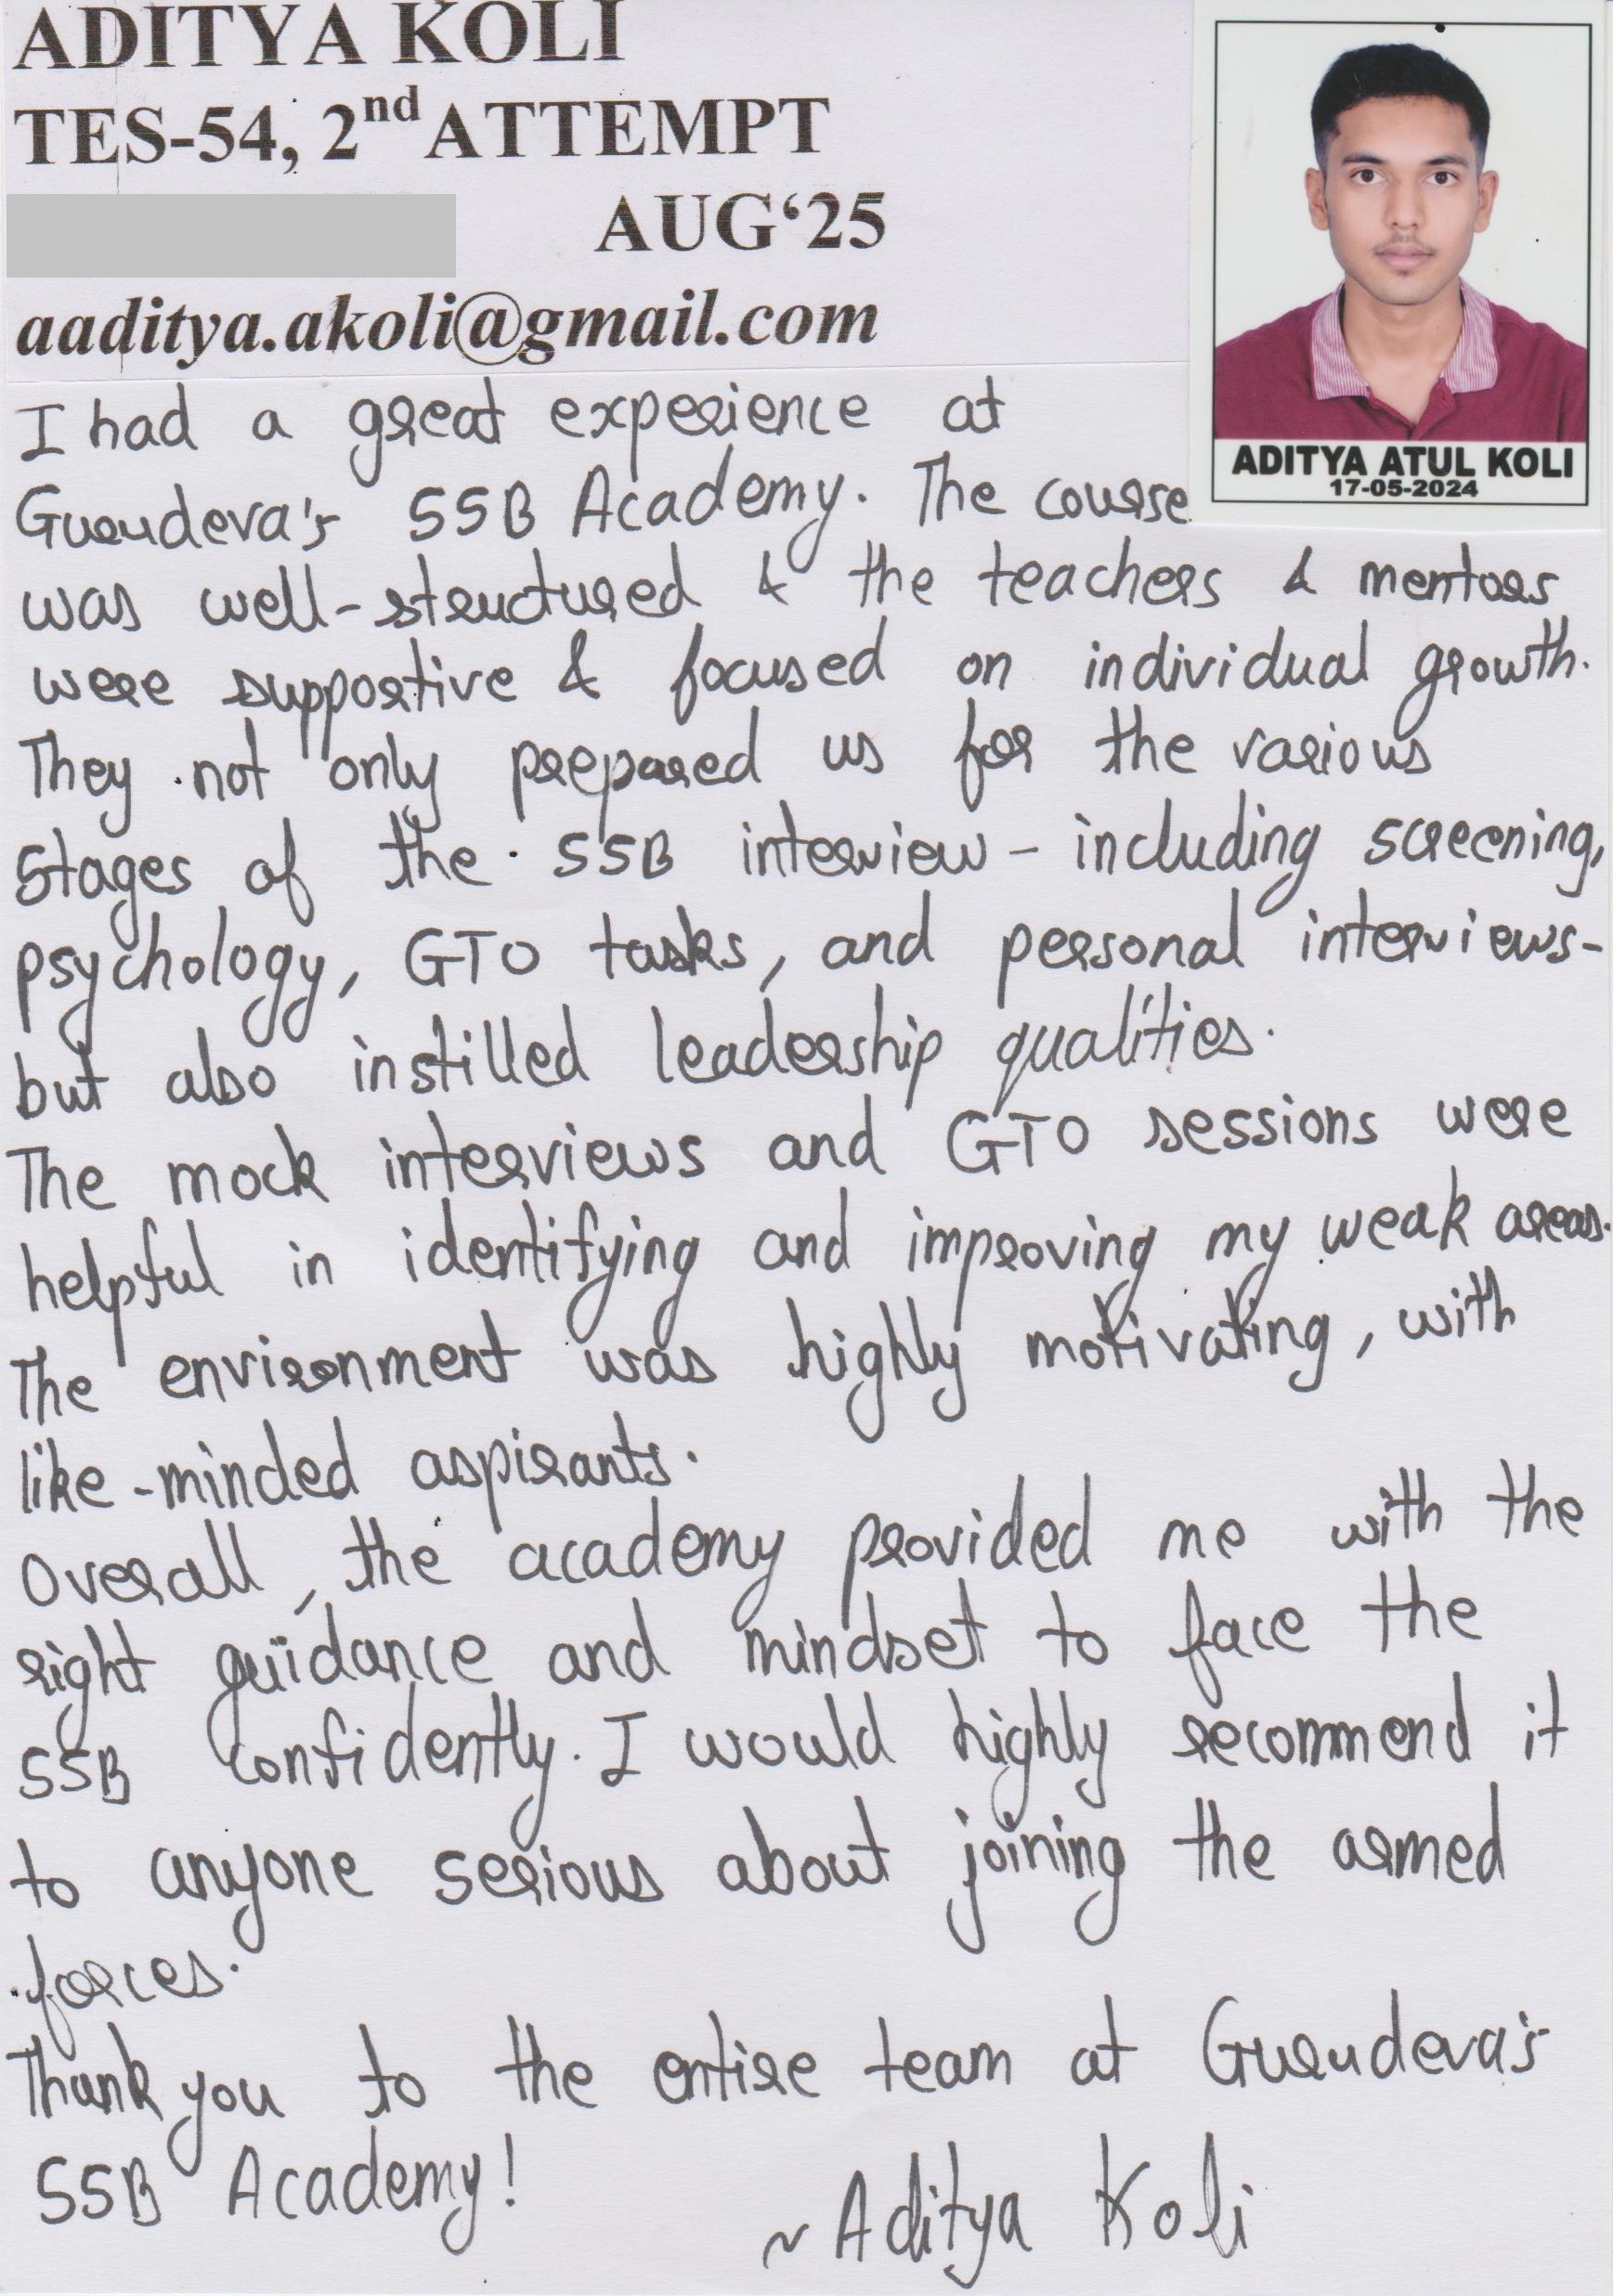 ADITYA KOLI
TES-54, 2nd ATTEMPT
AUG‘25
aaditya.akoli@gmail.com
ADITYA ATUL KOLI
17-05-2024
I had a great experience at
Gurudeva's SSB Academy. The course
was well-structured & the teachers & mentors
were supportive & focused on individual growth.
They not only prepared us for the various
stages of the SSB interview - including screening,
psychology, GTO tasks, and personal interviews-
but also instilled leadership qualities.
The mock interviews and GTO sessions were
helpful in identifying and improving my weak areas.
The environment was highly motivating, with
like-minded aspirants.
Overall, the academy provided me with the
right guidance and mindset to face the
SSB confidently. I would highly recommend it
to anyone serious about joining the armed
forces.
Thank you to the entire team at Gurudeva's
SSB Academy!
~ Aditya Koli